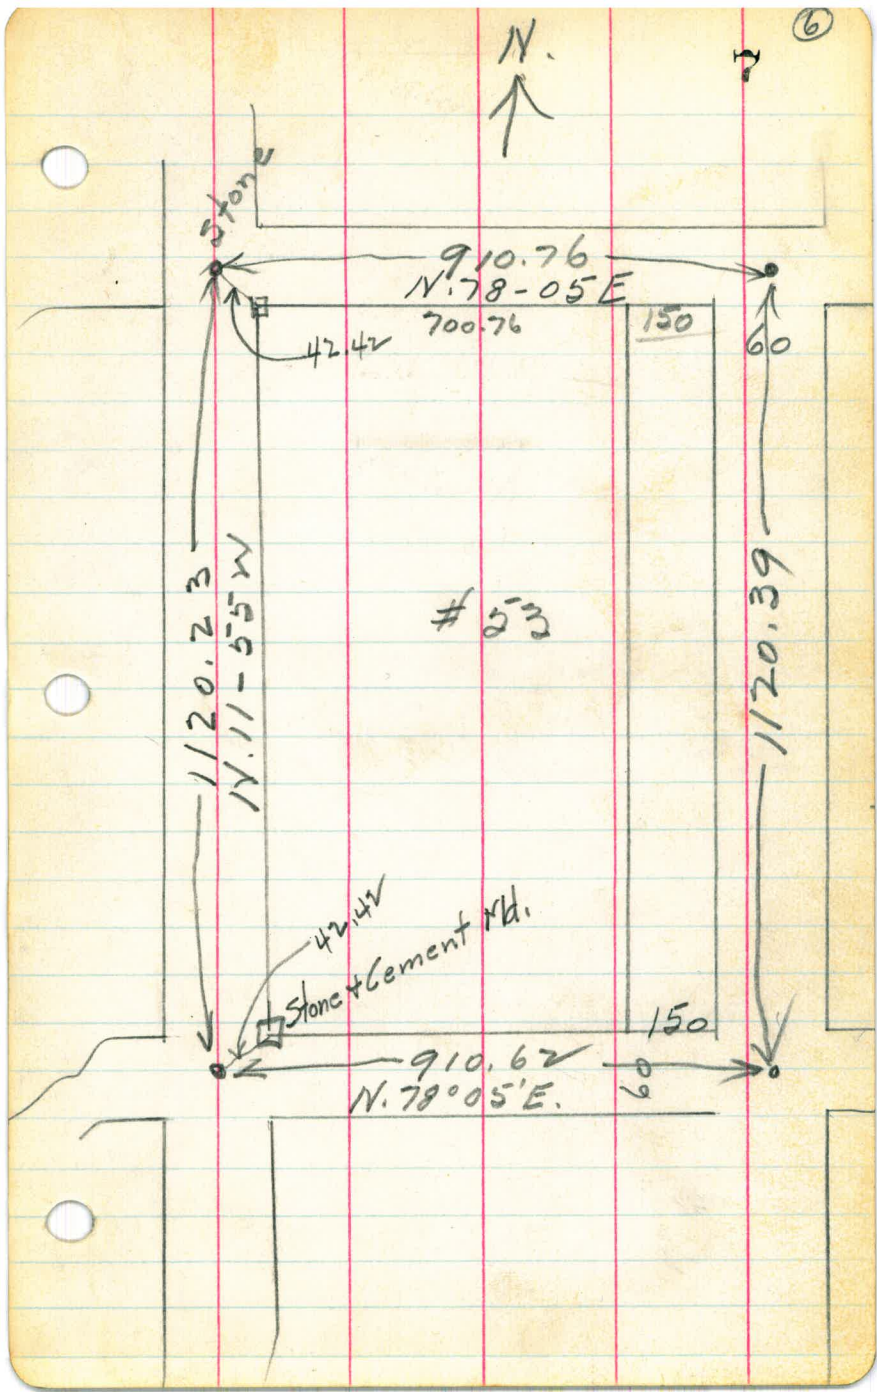 6
7
N.
Stone
910.76
N.78-05E
700.76
150
60
42.42
1120.23
N.11-55W
# 53
1120.39
42.42
Stone + Cement Md.
150
910.62
60
N.78°05'E.